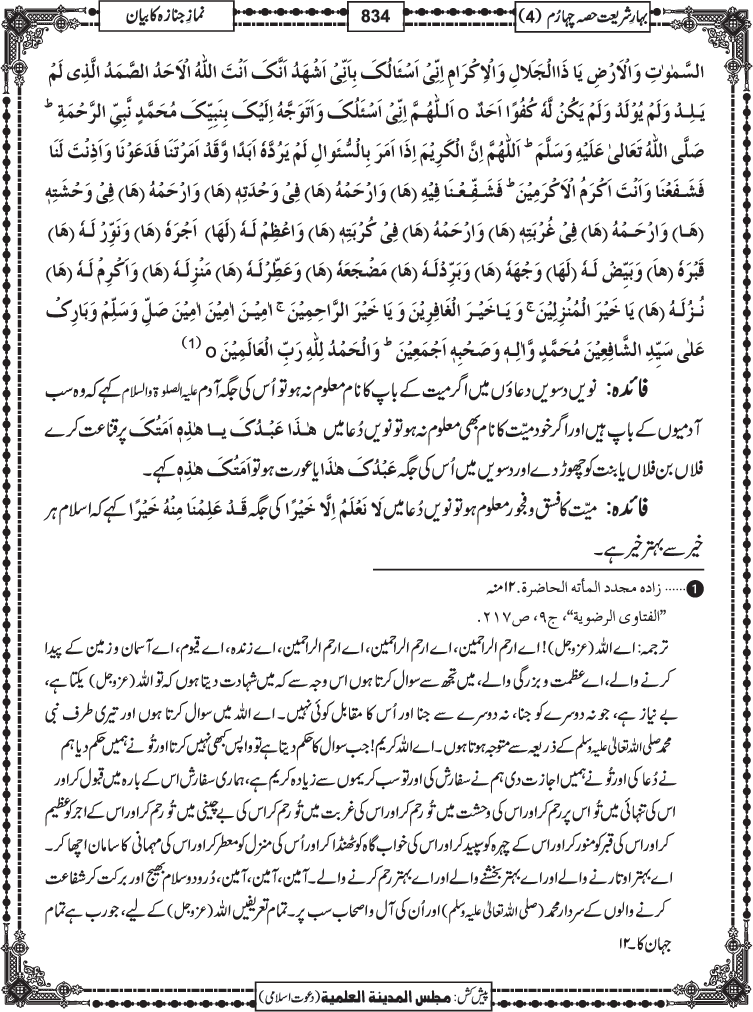 بہارِ شریعت حصہ چہارُم (4)
834
نمازِ جنازہ کا بیان
السَّمٰوٰتِ وَالْاَرْضِ یَا ذَا الْجَلَالِ وَالْاِکْرَامِ اِنِّیْ اَسْئَالُکَ بِاَنِّیْ اَشْهَدُ اَنَّکَ اَنْتَ اللّٰهُ الْاَحَدُ الصَّمَدُ الَّذِی لَمْ
یَلِدْ وَلَمْ یُوْلَدْ وَلَمْ یَکُنْ لَّهٗ کُفُوًا اَحَدٌ o اَللّٰهُمَّ اِنِّیْ اَسْئَلُکَ وَاَتَوَجَّهُ اِلَیْکَ بِنَبِیِّکَ مُحَمَّدٍ نَّبِیِّ الرَّحْمَةِ ؕ
صَلَّی اللّٰهُ تَعَالٰی عَلَیْهِ وَسَلَّمَ ؕ اَللّٰهُمَّ اِنَّ الْکَرِیْمَ اِذَا اَمَرَ بِالسُّئَوالِ لَمْ یَرُدَّهٗ اَبَدًا وَّقَدْ اَمَرْتَنَا فَدَعَوْنَا وَاَذِنْتَ لَنَا
فَشَفَعْنَا وَاَنْتَ اَکْرَمُ الْاَکْرَمِیْنَ ؕ فَشَفِّعْنَا فِیْهِ (هَا) وَارْحَمْهُ (هَا) فِیْ وَحْدَتِهٖ (هَا) وَارْحَمْهُ (هَا) فِیْ وَحْشَتِهٖ
(هَا) وَارْحَمْهُ (هَا) فِیْ غُرْبَتِهٖ (هَا) وَارْحَمْهُ (هَا) فِیْ کُرْبَتِهٖ (هَا) وَاعْظِمْ لَهٗ (لَهَا) اَجْرَهٗ (هَا) وَنَوِّرْ لَهٗ (هَا)
قَبْرَهٗ (هاَ) وَبَیِّضْ لَهٗ (لَهَا) وَجْهَهٗ (هَا) وَبَرِّدْلَهٗ (هَا) مَضْجَعَهٗ (هَا) وَعَطِّرْلَهٗ (هَا) مَنْزِلَهٗ (هَا) وَاَکْرِمْ لَهٗ (هَا)
نُزُلَهٗ (هَا) یَا خَیْرَ الْمُنْزِلِیْنَ ۚ وَیَاخَیْرَ الْغَافِرِیْنَ وَیَا خَیْرَ الرَّاحِمِیْنَ ۚ اٰمِیْنَ اٰمِیْنَ اٰمِیْنَ صَلِّ وَسَلِّمْ وَبَارِکْ
عَلٰی سَیِّدِ الشَّافِعِیْنَ مُحَمَّدٍ وَّاٰلِهٖ وَصَحْبِهٖ اَجْمَعِیْنَ ؕ وَالْحَمْدُ لِلّٰهِ رَبِّ الْعَالَمِیْنَ o (1)
فائدہ: نویں دسویں دعاؤں میں اگر میت کے باپ کا نام معلوم نہ ہو تو اُس کی جگہ آدم علیہ الصلوۃ والسلام کہے کہ وہ سب
آدمیوں کے باپ ہیں اور اگر خود میّت کا نام بھی معلوم نہ ہو تو نویں دُعا میں هٰذَا عَبْدُکَ یا هٰذِهٖ اَمَتُکَ پر قناعت کرے
فلاں بن فلاں یا بنت کو چھوڑ دے اور دسویں میں اُس کی جگہ عَبْدُکَ هٰذَا یا عورت ہو تو اَمَتُکَ هٰذِهٖ کہے۔
فائدہ: میّت کا فسق و فجور معلوم ہو تو نویں دُعا میں لَا نَعْلَمُ اِلَّا خَیْرًا کی جگہ قَدْ عَلِمْنَا مِنْهُ خَیْرًا کہے کہ اسلام ہر
خیر سے بہتر خیر ہے۔
1 ...... زاده مجدد المأته الحاضرة. ۱۲ منہ
”الفتاوى الرضوية“، ج۹، ص۲۱۷.
ترجمہ: اے اللہ (عزوجل)! اے ارحم الراحمین، اے ارحم الراحمین، اے ارحم الراحمین، اے زندہ، اے قیوم، اے آسمان و زمین کے پیدا
کرنے والے، اے عظمت و بزرگی والے، میں تجھ سے سوال کرتا ہوں اس وجہ سے کہ میں شہادت دیتا ہوں کہ تو اللہ (عزوجل) یکتا ہے،
بے نیاز ہے، جو نہ دوسرے کو جنا، نہ دوسرے سے جنا اور اُس کا مقابل کوئی نہیں۔ اے اللہ میں سوال کرتا ہوں اور تیری طرف نبی
محمد صلی اللہ تعالیٰ علیہ وسلم کے ذریعہ سے متوجہ ہوتا ہوں۔ اے اللہ کریم! جب سوال کا حکم دیتا ہے تو واپس کبھی نہیں کرتا اور تُو نے ہمیں حکم دیا ہم
نے دُعا کی اور تُو نے ہمیں اجازت دی ہم نے سفارش کی اور تو سب کریموں سے زیادہ کریم ہے، ہماری سفارش اس کے بارہ میں قبول کر اور
اس کی تنہائی میں تُو اس پر رحم کر اور اس کی وحشت میں تُو رحم کر اور اس کی غربت میں تُو رحم کر اس کی بے چینی میں تُو رحم کر اور اس کے اجر کو عظیم
کر اور اس کی قبر کو منور کر اور اس کے چہرہ کو سپید کر اور اس کی خواب گاہ کو ٹھنڈا کر اور اُس کی منزل کو معطر کر اور اس کی مہمانی کا سامان اچھا کر۔
اے بہتر اوتارنے والے اور اے بہتر بخشنے والے اور اے بہتر رحم کرنے والے۔ آمین، آمین، آمین، دُرود و سلام بھیج اور برکت کر شفاعت
کرنے والوں کے سردار محمد (صلی اللہ تعالیٰ علیہ وسلم) اور اُن کی آل و اصحاب سب پر۔ تمام تعریفیں اللہ (عزوجل) کے لیے، جو رب ہے تمام
جہان کا۔ ۱۲
پیش کش: مجلس المدينة العلمية (دعوت اسلامی)